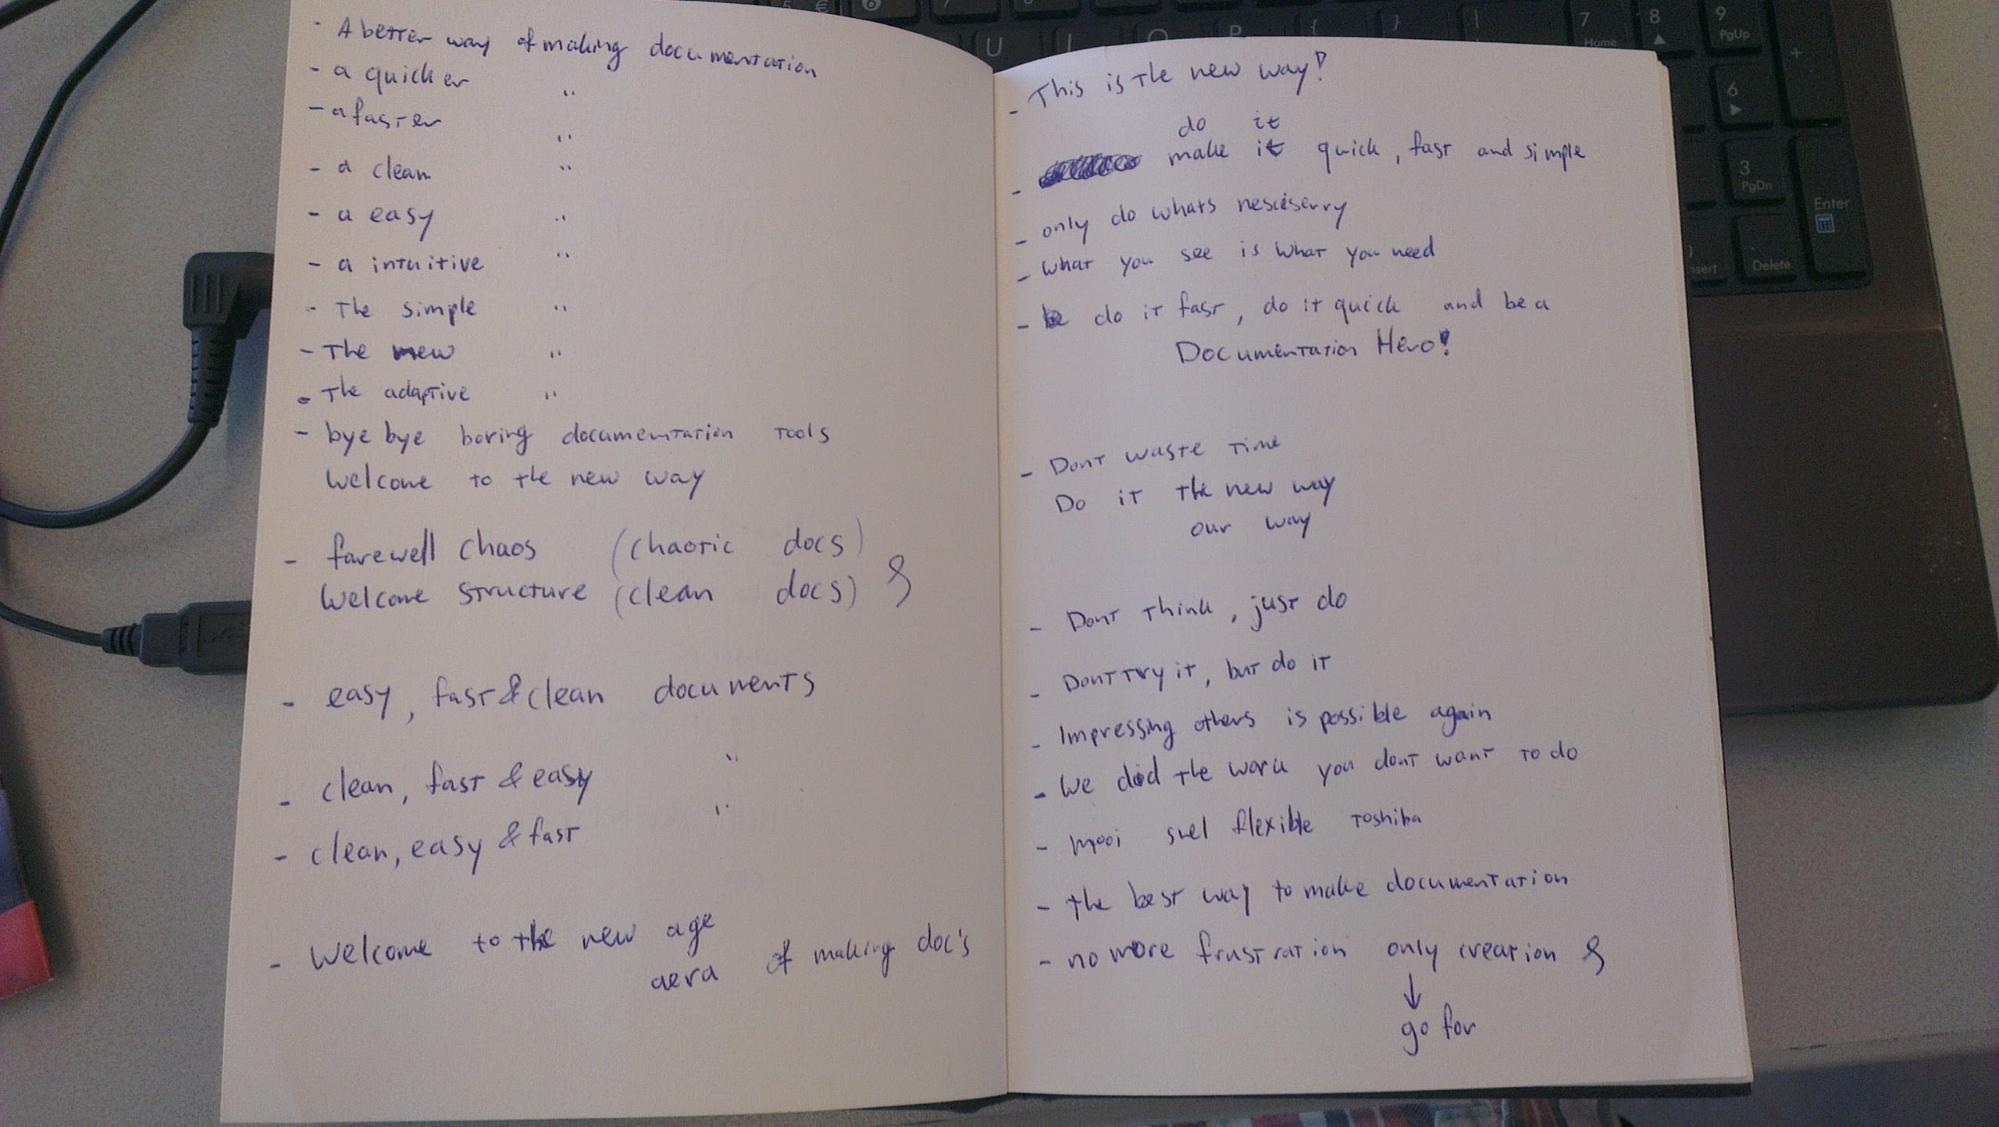 - A better way of making documentation
- a quicker "
- a faster "
- a clean "
- a easy "
- a intuitive "
- The simple "
- The new "
- The adaptive "
- bye bye boring documentation tools
Welcome to the new way
- farewell chaos (chaotic docs)
Welcome structure (clean docs)
- easy, fast & clean documents
- clean, fast & easy "
- clean, easy & fast "
- Welcome to the new age
aera of making doc's
- This is the new way!
do it
- make it quick, fast and simple
- only do whats nesciserry
- what you see is what you need
- do it fast, do it quick and be a
Documentation Hero!
- Dont waste time
Do it the new way
our way
- Dont think, just do
- Dont try it, but do it
- Impressing others is possible again
- We did the work you dont want to do
- mooi snel flexible toshiba
- the best way to make documentation
- no more frustration only creation
↓
go for
7 Home
8
9 PgUp
+
6
3 PgDn
Enter
Delete
U
P